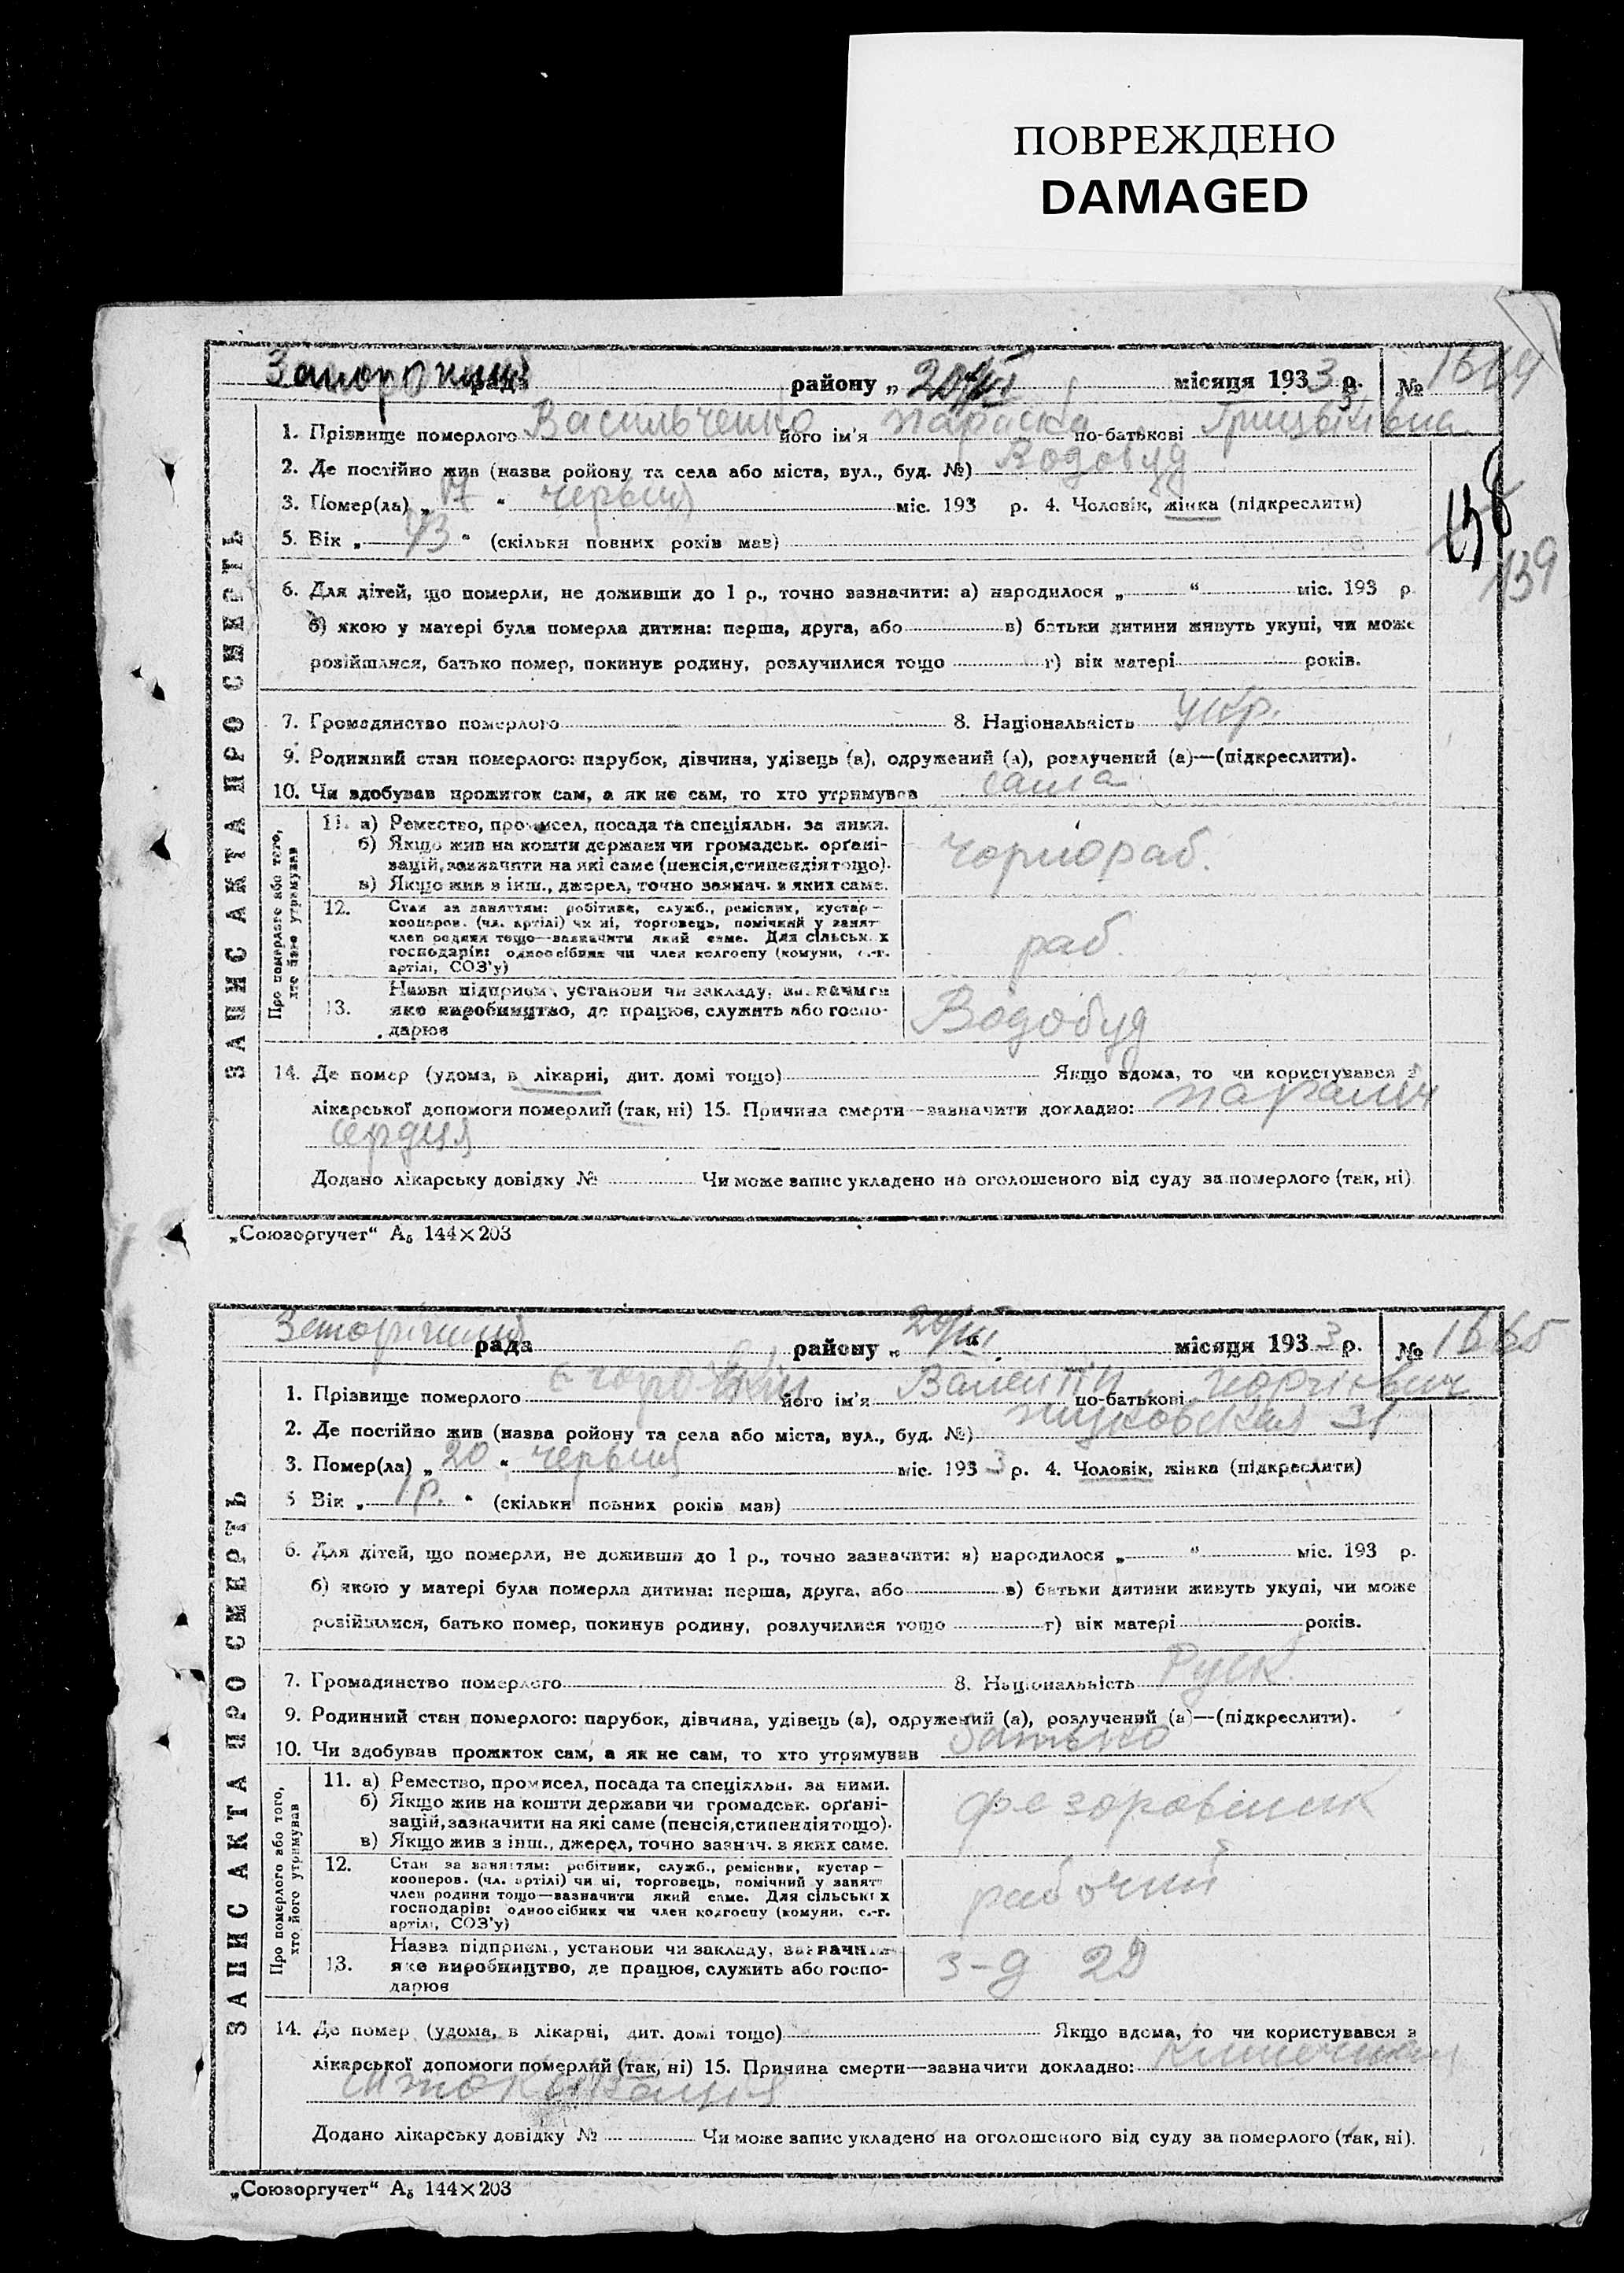 ПОВРЕЖДЕНО
DAMAGED
району „ 20/VI місяця 1933 р. № 1664
1. Прізвище померлого Васильченко його ім'я Параска по-батькові
2. Де постійно жив (назва ройону та села або міста, вул., буд. №) Водобуд
3. Помер(ла) „ 17 “ червня міс. 193 р. 4. Чоловік, жінка (підкреслити)
5. Вік „ 43 “ (скільки повних років мав)
138
139
6. Для дітей, що померли, не доживши до 1 р., точно зазначити: а) народилося „ “ міс. 193 р.
б) якою у матері була померла дитина: перша, друга, або в) батьки дитини живуть укупі, чи може
розійшлися, батько помер, покинув родину, розлучилися тощо г) вік матері років.
7. Громадянство померлого 8. Національність укр.
9. Родинний стан померлого: парубок, дівчина, удівець (а), одружений (а), розлучений (а)—(підкреслити).
10. Чи здобував прожиток сам, а як не сам, то хто утримував сама
ЗАПИС АКТА ПРО СМЕРТЬ
Про померлого або того, хто його утримував
11. а) Ремество, промисел, посада та спеціяльн. за ними.
б) Якщо жив на кошти держави чи громадськ. орґані-
зацій, зазначити на які саме (пенсія, стипендія тощо).
в) Якщо жив з інш., джерел, точно зазнач. з яких саме.
чорнораб.
12. Стан за заняттям: робітник, служб., ремісник, кустар—
кооперов. (чл. артілі) чи ні, торговець, помічний у занят
член родини тощо—зазначити який саме. Для сільськ х
господарів: одноосібник чи член колгоспу (комуни, с.-г.
артілі, СОЗ'у)
раб.
13. Назва підприєм., установи чи закладу, зазначити
яке виробництво, де працює, служить або госпо-
дарює
Водобуд
14. Де помер (удома, в лікарні, дит. домі тощо) Якщо вдома, то чи користувався з
лікарської допомоги померлий (так, ні) 15. Причина смерти—зазначити докладно: параліч
сердця
Додано лікарську довідку № Чи може запис укладено на оголошеного від суду за померлого (так, ні)
„Союзоргучет“ А₅ 144×203
рада району „ 20/VI “ місяця 1933 р. № 1665
1. Прізвище померлого його ім'я Валентин по-батькові
2. Де постійно жив (назва ройону та села або міста, вул., буд. №) 31
3. Помер(ла) „ 20 “ червня міс. 1933 р. 4. Чоловік, жінка (підкреслити)
5 Вік „ 1 р. “ (скільки повних років мав)
6. Для дітей, що померли, не доживши до 1 р., точно зазначити: а) народилося „ “ міс. 193 р.
б) якою у матері була померла дитина: перша, друга, або в) батьки дитини живуть укупі, чи може
розійшлися, батько помер, покинув родину, розлучилися тощо г) вік матері років.
7. Громадянство померлого 8. Національність Руск.
9. Родинний стан померлого: парубок, дівчина, удівець (а), одружений (а), розлучений (а)—(підкреслити).
10. Чи здобував прожиток сам, а як не сам, то хто утримував батько
ЗАПИС АКТА ПРО СМЕРТЬ
Про померлого або того, хто його утримував
11. а) Ремество, промисел, посада та спеціяльн. за ними.
б) Якщо жив на кошти держави чи громадськ. орґані-
зацій, зазначити на які саме (пенсія, стипендія тощо).
в) Якщо жив з інш., джерел, точно зазнач. з яких саме.
12. Стан за заняттям: робітник, служб., ремісник, кустар—
кооперов. (чл. артілі) чи ні, торговець, помічний у занят
член родини тощо—зазначити який саме. Для сільськ х
господарів: одноосібник чи член колгоспу (комуни, с.-г.
артілі, СОЗ'у)
рабочий
13. Назва підприєм., установи чи закладу, зазначити
яке виробництво, де працює, служить або госпо-
дарює
з-д 29
14. Де помер (удома, в лікарні, дит. домі тощо) Якщо вдома, то чи користувався з
лікарської допомоги померлий (так, ні) 15. Причина смерти—зазначити докладно:
Додано лікарську довідку № Чи може запис укладено на оголошеного від суду за померлого (так, ні).
„Союзоргучет“ А₅ 144×203